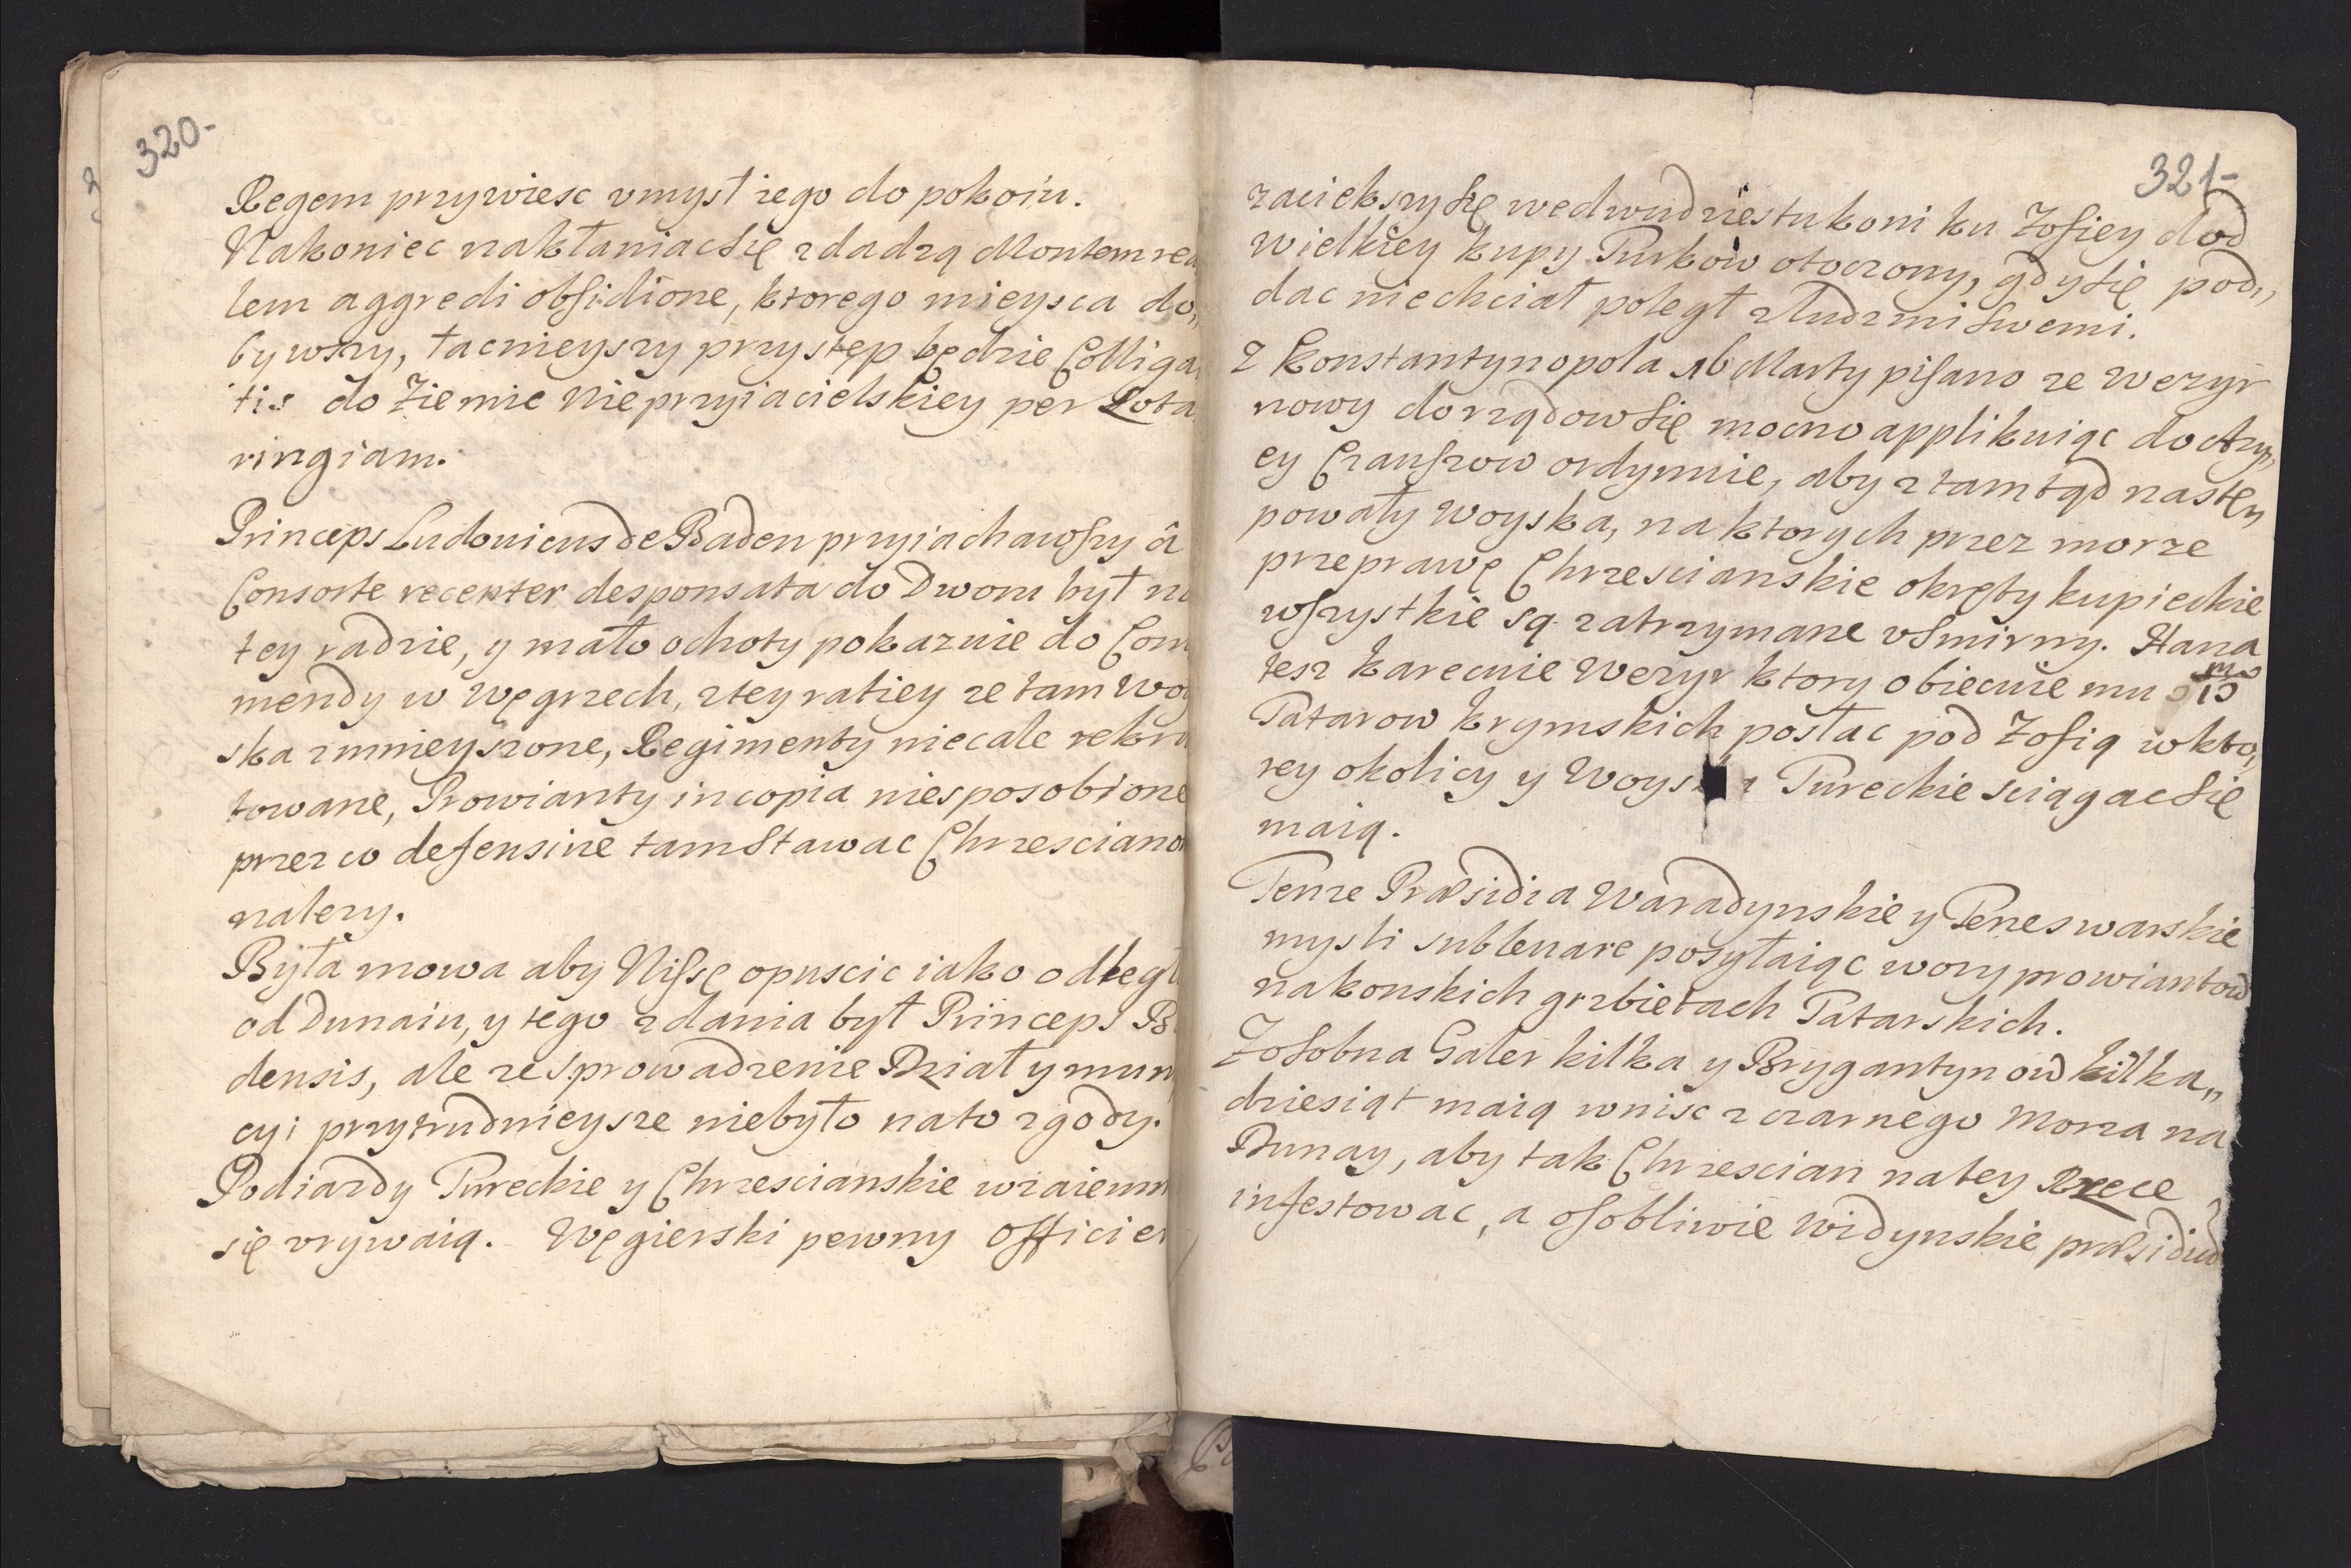 320-
Regem przywiesc vmysł iego do pokoiu.
Nakoniec nakłaniac się zdadzą Montem rea
lem aggredi obsidione, ktorego mieysca do„
bywszy, łacnieyszy przystęp będzie Colliga
tis do Ziemie Nieprzyiacielskiey per Lota
ringiam.
Princeps Ludouicus de Baden przyiachawszy â
Consorte recenter desponsata do Dworu był na
tey radzie, y mało ochoty pokazuie do Com
mendy w Węgrzech, z tey ratiey ze tam Woy
ska zmnieyszone, Regimenty niecale rekru
towane, Prowianty in copia niesposobione
przez co defensiue tam stawac Chrzesciano
nalezy.
Była mowa aby Nissę opuscic iako odległ
od Dunaiu, y tego zdania był Princeps B
densis, ale ze sprowadzenie Dział y mun
cyi przytrudnieysze niebyło nato zgody.
Podiazdy Tureckie y Chrzescianskie wzaiemn
się vrywaią. Węgierski pewny Officier
321-
zaciekszy się wedwudziestu koni ku Zofiey dod
wielkiey kupy Turkow otoczony, gdy się pod„
dac niechciał poległ zludzmi swemi.
Z Konstantynopola 16 Marty pisano ze Wezyr
nowy do rządow się mocno applikuiąc do Azy„
ey Czauszow ordynuie, aby ztamtąd nastę„
powały woyska, na ktorych przez morze
przeprawę Chrzescianskie okręty kupieckie
wszystkie są zatrzymane v Smirny. Hana
tesz karecuie Wezyr ktory obiecuie mu 15 m
Tatarow krymskich posłac pod Zofią w kto„
rey okolicy y Woyska Tureckie sciągac się
maią.
Tenze Præsidia Waradynskie y Temeswarskie
mysli subleuare posyłaiąc wory prowiantow
nakonskich grzbietach Tatarskich.
Zosobna Galer kilka y Brygantynow kilka„
dziesiąt maią wnisc z czarnego Morza na
Dunay, aby tak Chrzescian natey Rzece
infestowac, a osobliwie Widynskie præsidiu